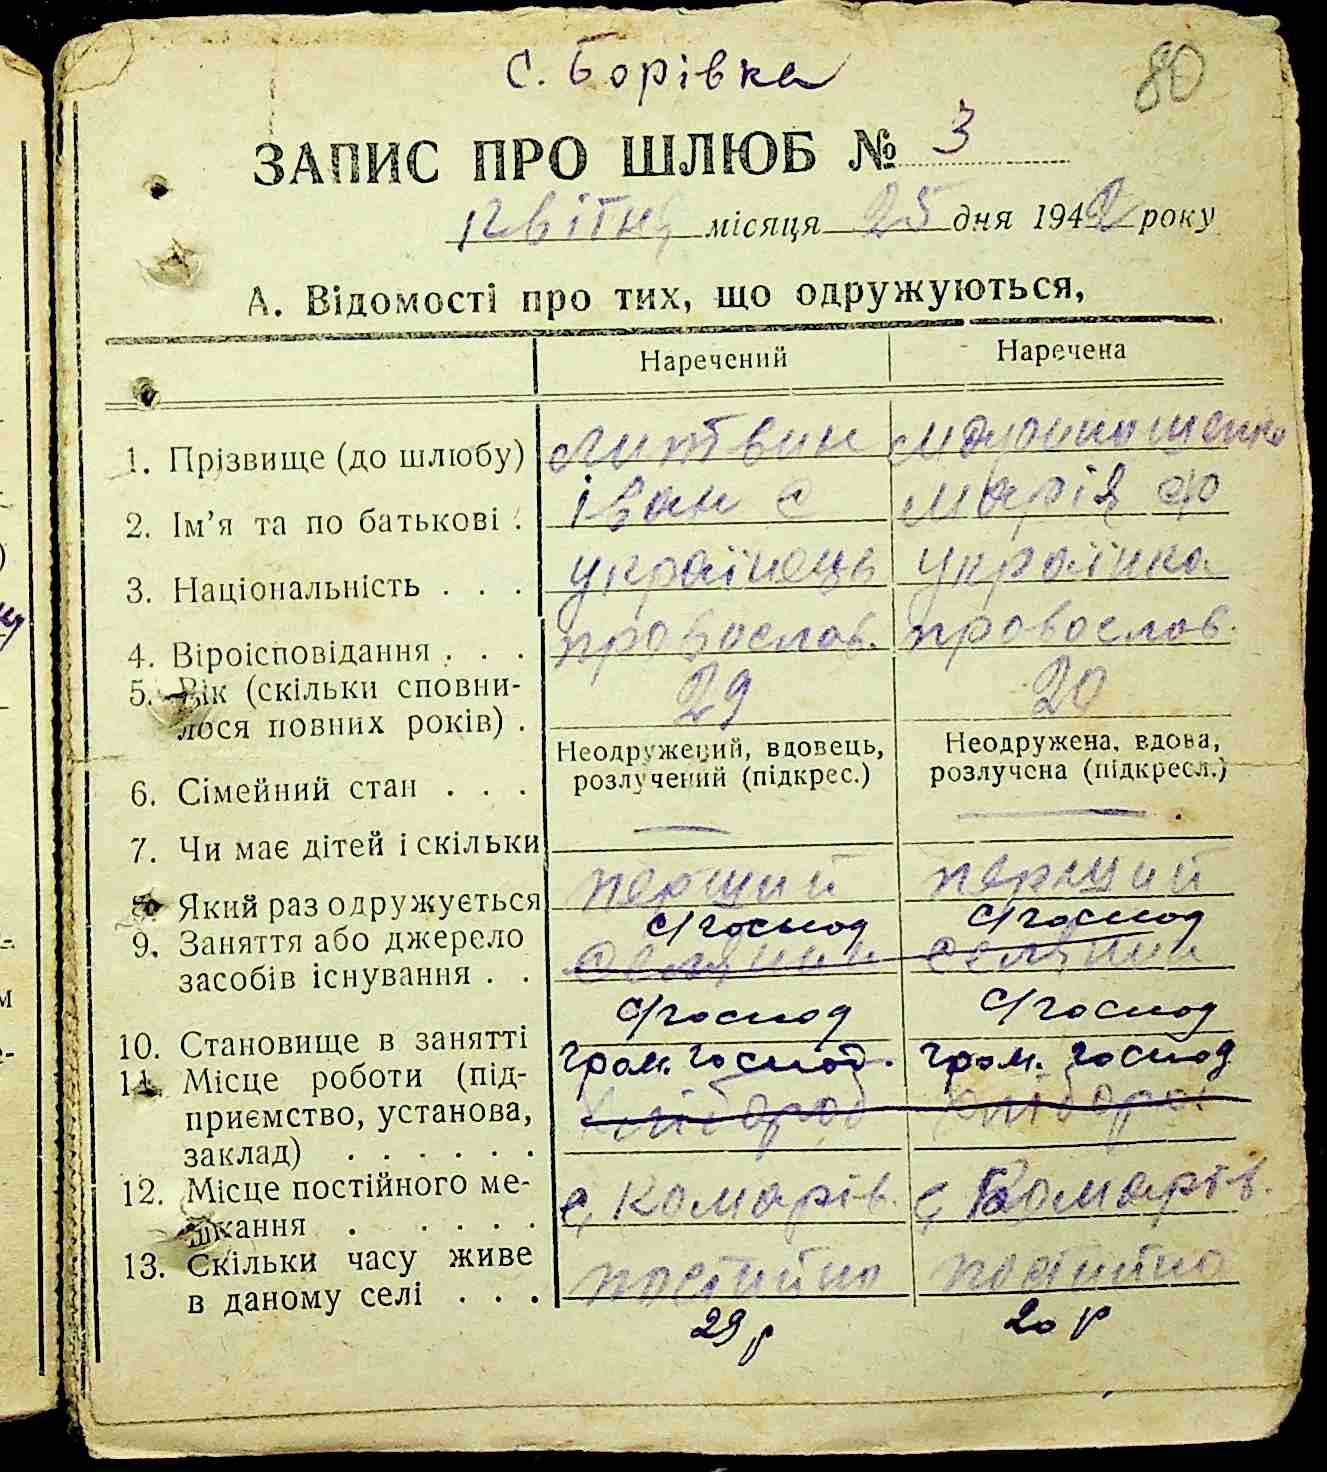 с. Борівка
80
ЗАПИС ПРО ШЛЮБ № 3
квітня місяця 25 дня 1942 року
А. Відомості про тих, що одружуються,
Наречений Наречена
1. Прізвище (до шлюбу) Литвин
2. Ім'я та по батькові . Іван С Марія Ф
3. Національність . . . українець українка
4. Віроісповідання . . . провослав. провослав.
5. Вік (скільки сповни-
лося повних років) . 29 20
6. Сімейний стан . . . Неодружений, вдовець, розлучений (підкрес.) Неодружена, вдова, розлучена (підкресл.)
7. Чи має дітей і скільки — —
8. Який раз одружується перший перший
9. Заняття або джерело с/господ с/господ
засобів існування . . селянин селянин
10. Становище в занятті с/господ с/господ
11. Місце роботи (під- гром. господ. гром. господ
приємство, установа,
заклад) . . . . . .
12. Місце постійного ме-
шкання . . . . . с. Комарів. с. Комарів.
13. Скільки часу живе
в даному селі . . . постійно постійно
29 р 20 р